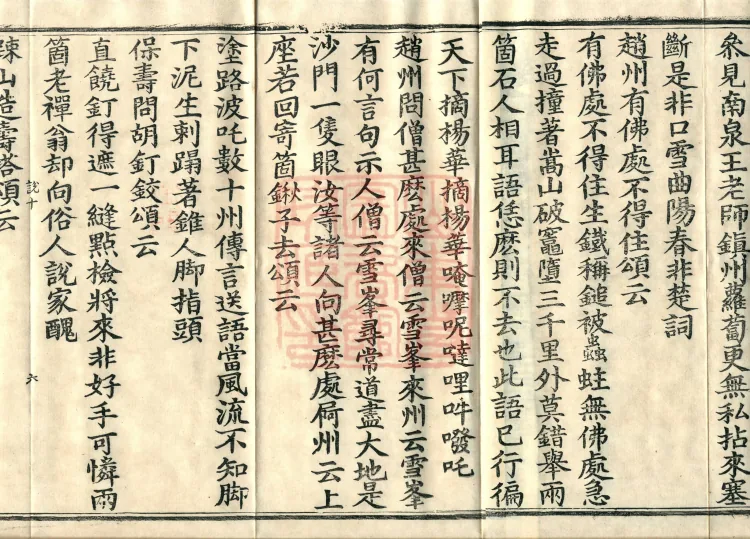 參見南泉王老師鎭州蘿蔔更無私拈來塞
斷是非口雪曲陽春非楚詞
趙州有佛處不得住頌云
有佛處不得住生鐵稱鎚被蟲蛀無佛處急
走過撞著嵩山破竈墮三千里外莫錯舉兩
箇石人相耳語恁麽則不去也此語已行徧
天下摘楊華摘楊華唵嚤呢噠哩吽㗶吒
趙州問僧甚麽處來僧云雪峯來州云雪峯
有何言句示人僧云雪峯尋常道盡大地是
沙門一隻眼汝等諸人向甚麽處屙州云上
座若回寄箇鍬子去頌云
塗路波吒數十州傳言送語當風流不知脚
下泥生剌蹋著錐人脚指頭
保壽問胡釘鉸頌云
直饒釘得遮一縫點檢將來非好手可憐兩
箇老禪翁却向俗人說家醜
說十
六
疎山造壽塔頌云